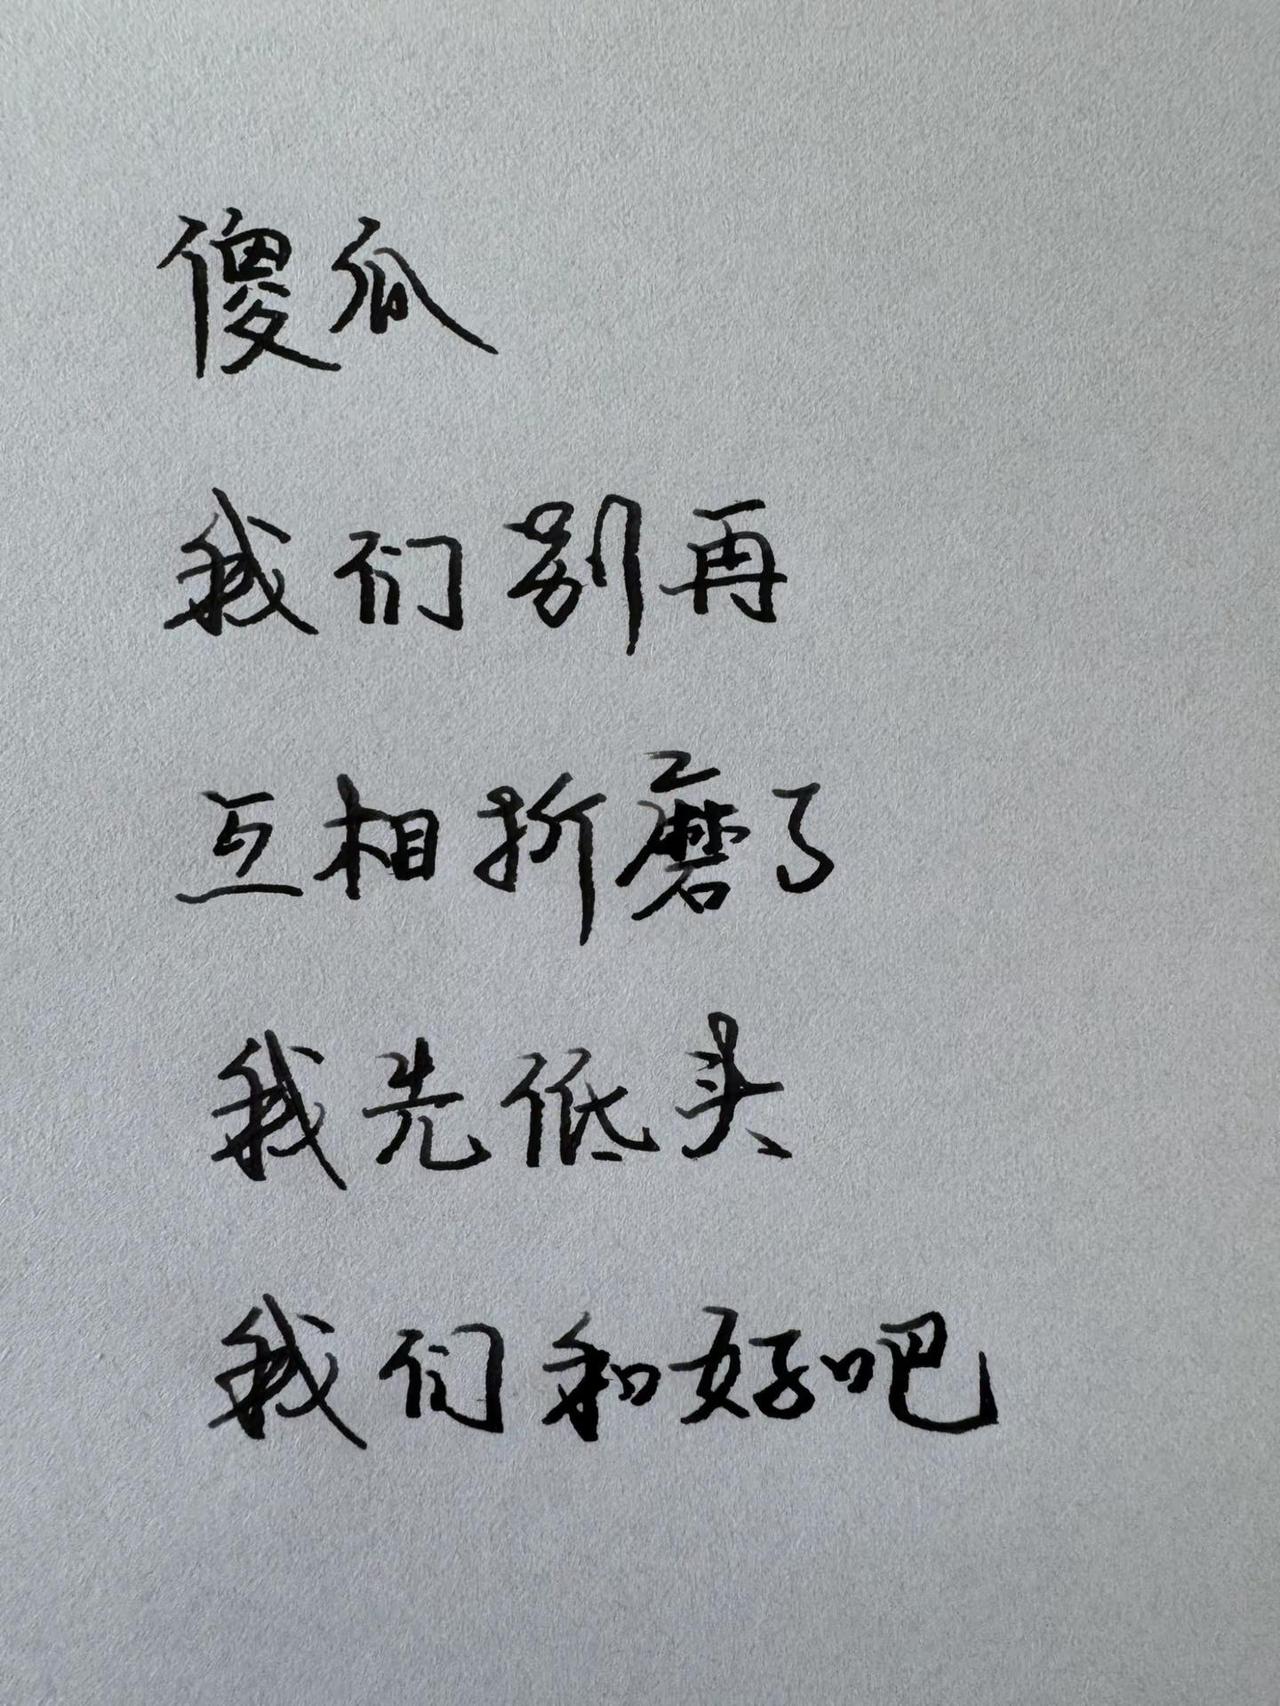 傻瓜
我们别再
互相折磨了
我先低头
我们和好吧